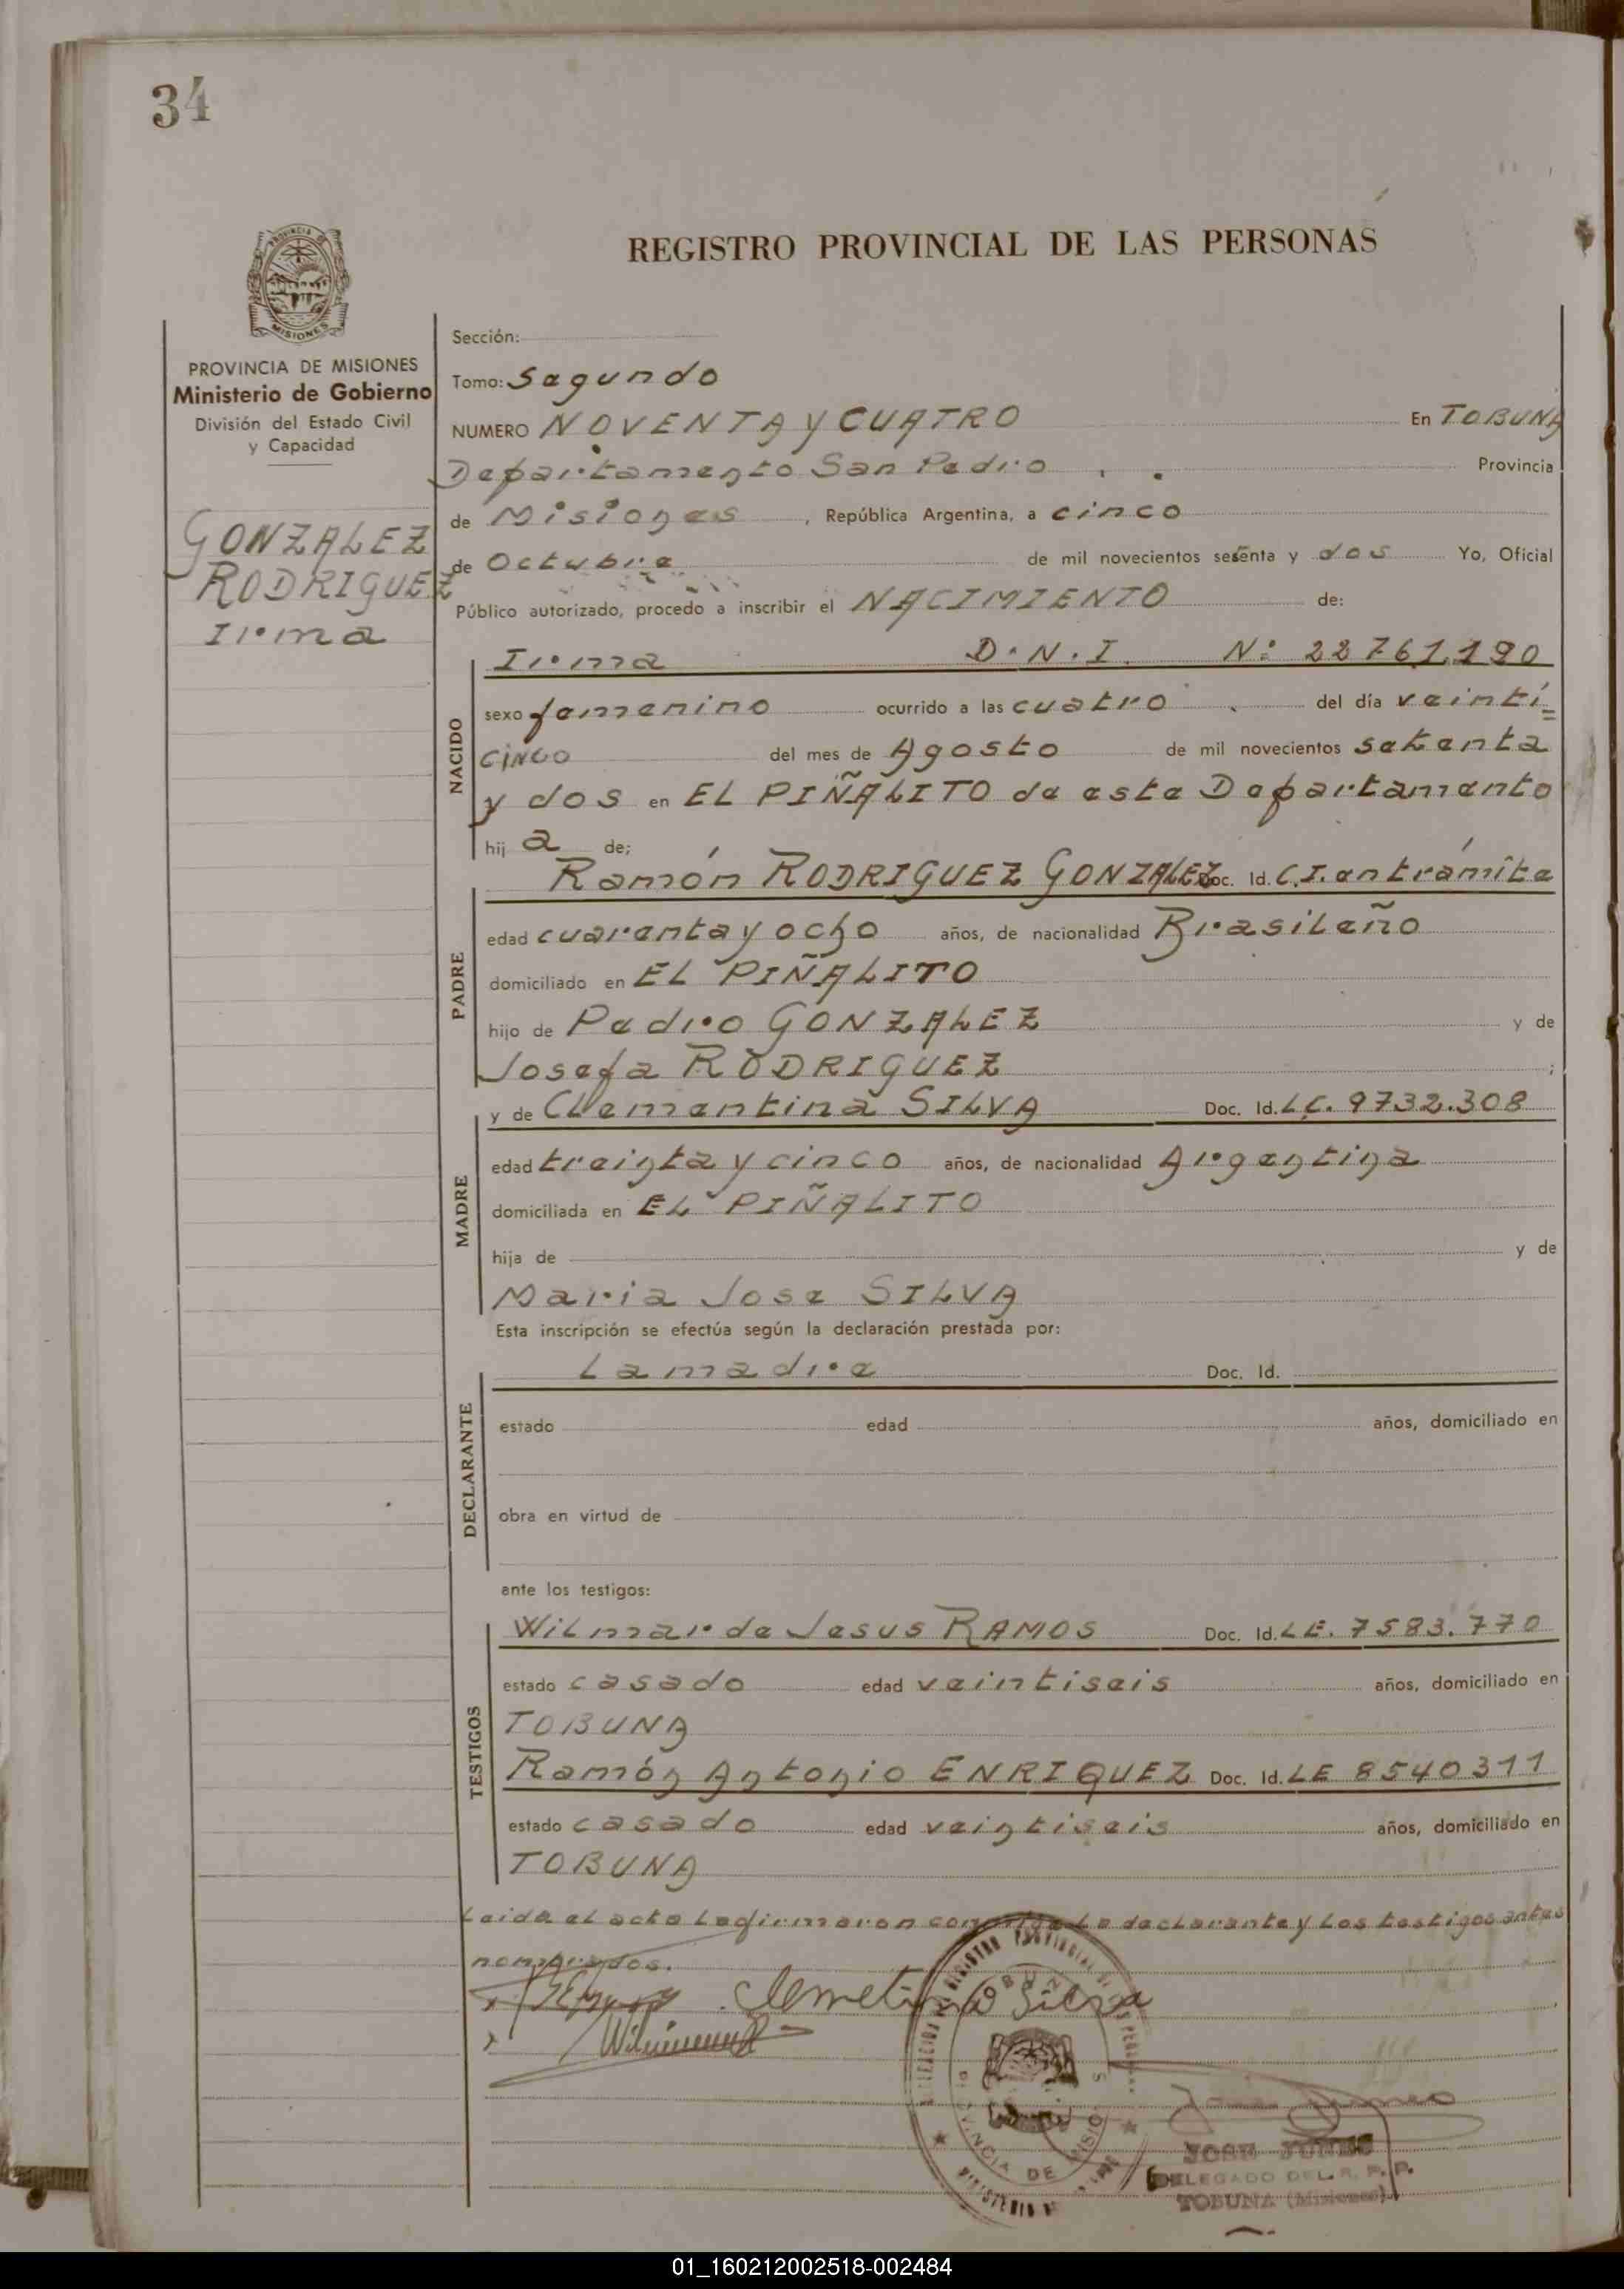 34
REGISTRO PROVINCIAL DE LAS PERSONAS
PROVINCIA DE
MISIONES
PROVINCIA DE MISIONES
Ministerio de Gobierno
División del Estado Civil
y Capacidad
GONZALEZ
RODRIGUEZ
Irma
Sección:
Tomo: Segundo
NUMERO NOVENTA y CUATRO En TOBUNA
Departamento San Pedro Provincia
de Misiones, República Argentina, a cinco
de Octubre de mil novecientos setenta y dos Yo, Oficial
Público autorizado, procedo a inscribir el NACIMIENTO de:
NACIDO
Irma D.N.I. Nº 22761.190
sexo femenino ocurrido a las cuatro del día veinti=
cinco del mes de Agosto de mil novecientos setenta
y dos en EL PIÑALITO de este Departamento
hij a de;
PADRE
Ramón RODRIGUEZ GONZALEZ Doc. Id. C.I. en trámite
edad cuarenta y ocho años, de nacionalidad Brasileño
domiciliado en EL PIÑALITO
hijo de Pedro GONZALEZ y de
Josefa RODRIGUEZ ;
MADRE
y de Clementina SILVA Doc. Id. L.C. 9732.308
edad treinta y cinco años, de nacionalidad Argentina
domiciliada en EL PIÑALITO
hija de y de
Maria Jose SILVA
Esta inscripción se efectúa según la declaración prestada por:
DECLARANTE
La madre Doc. Id.
estado edad años, domiciliado en
obra en virtud de
ante los testigos:
TESTIGOS
Wilmar de Jesus RAMOS Doc. Id. L.E. 7583.770
estado casado edad veintiseis años, domiciliado en
TOBUNA
Ramón Antonio ENRIQUEZ Doc. Id. LE 8540311
estado casado edad veintiseis años, domiciliado en
TOBUNA
Leida el acta la firmaron conmigo la declarante y los testigos antes
nombrados.
Clemetina Silva
PROVINCIA DE MISIONES
JOSE JUNES
DELEGADO DEL R. P. P.
TOBUNA (Misiones)
01_160212002518-002484